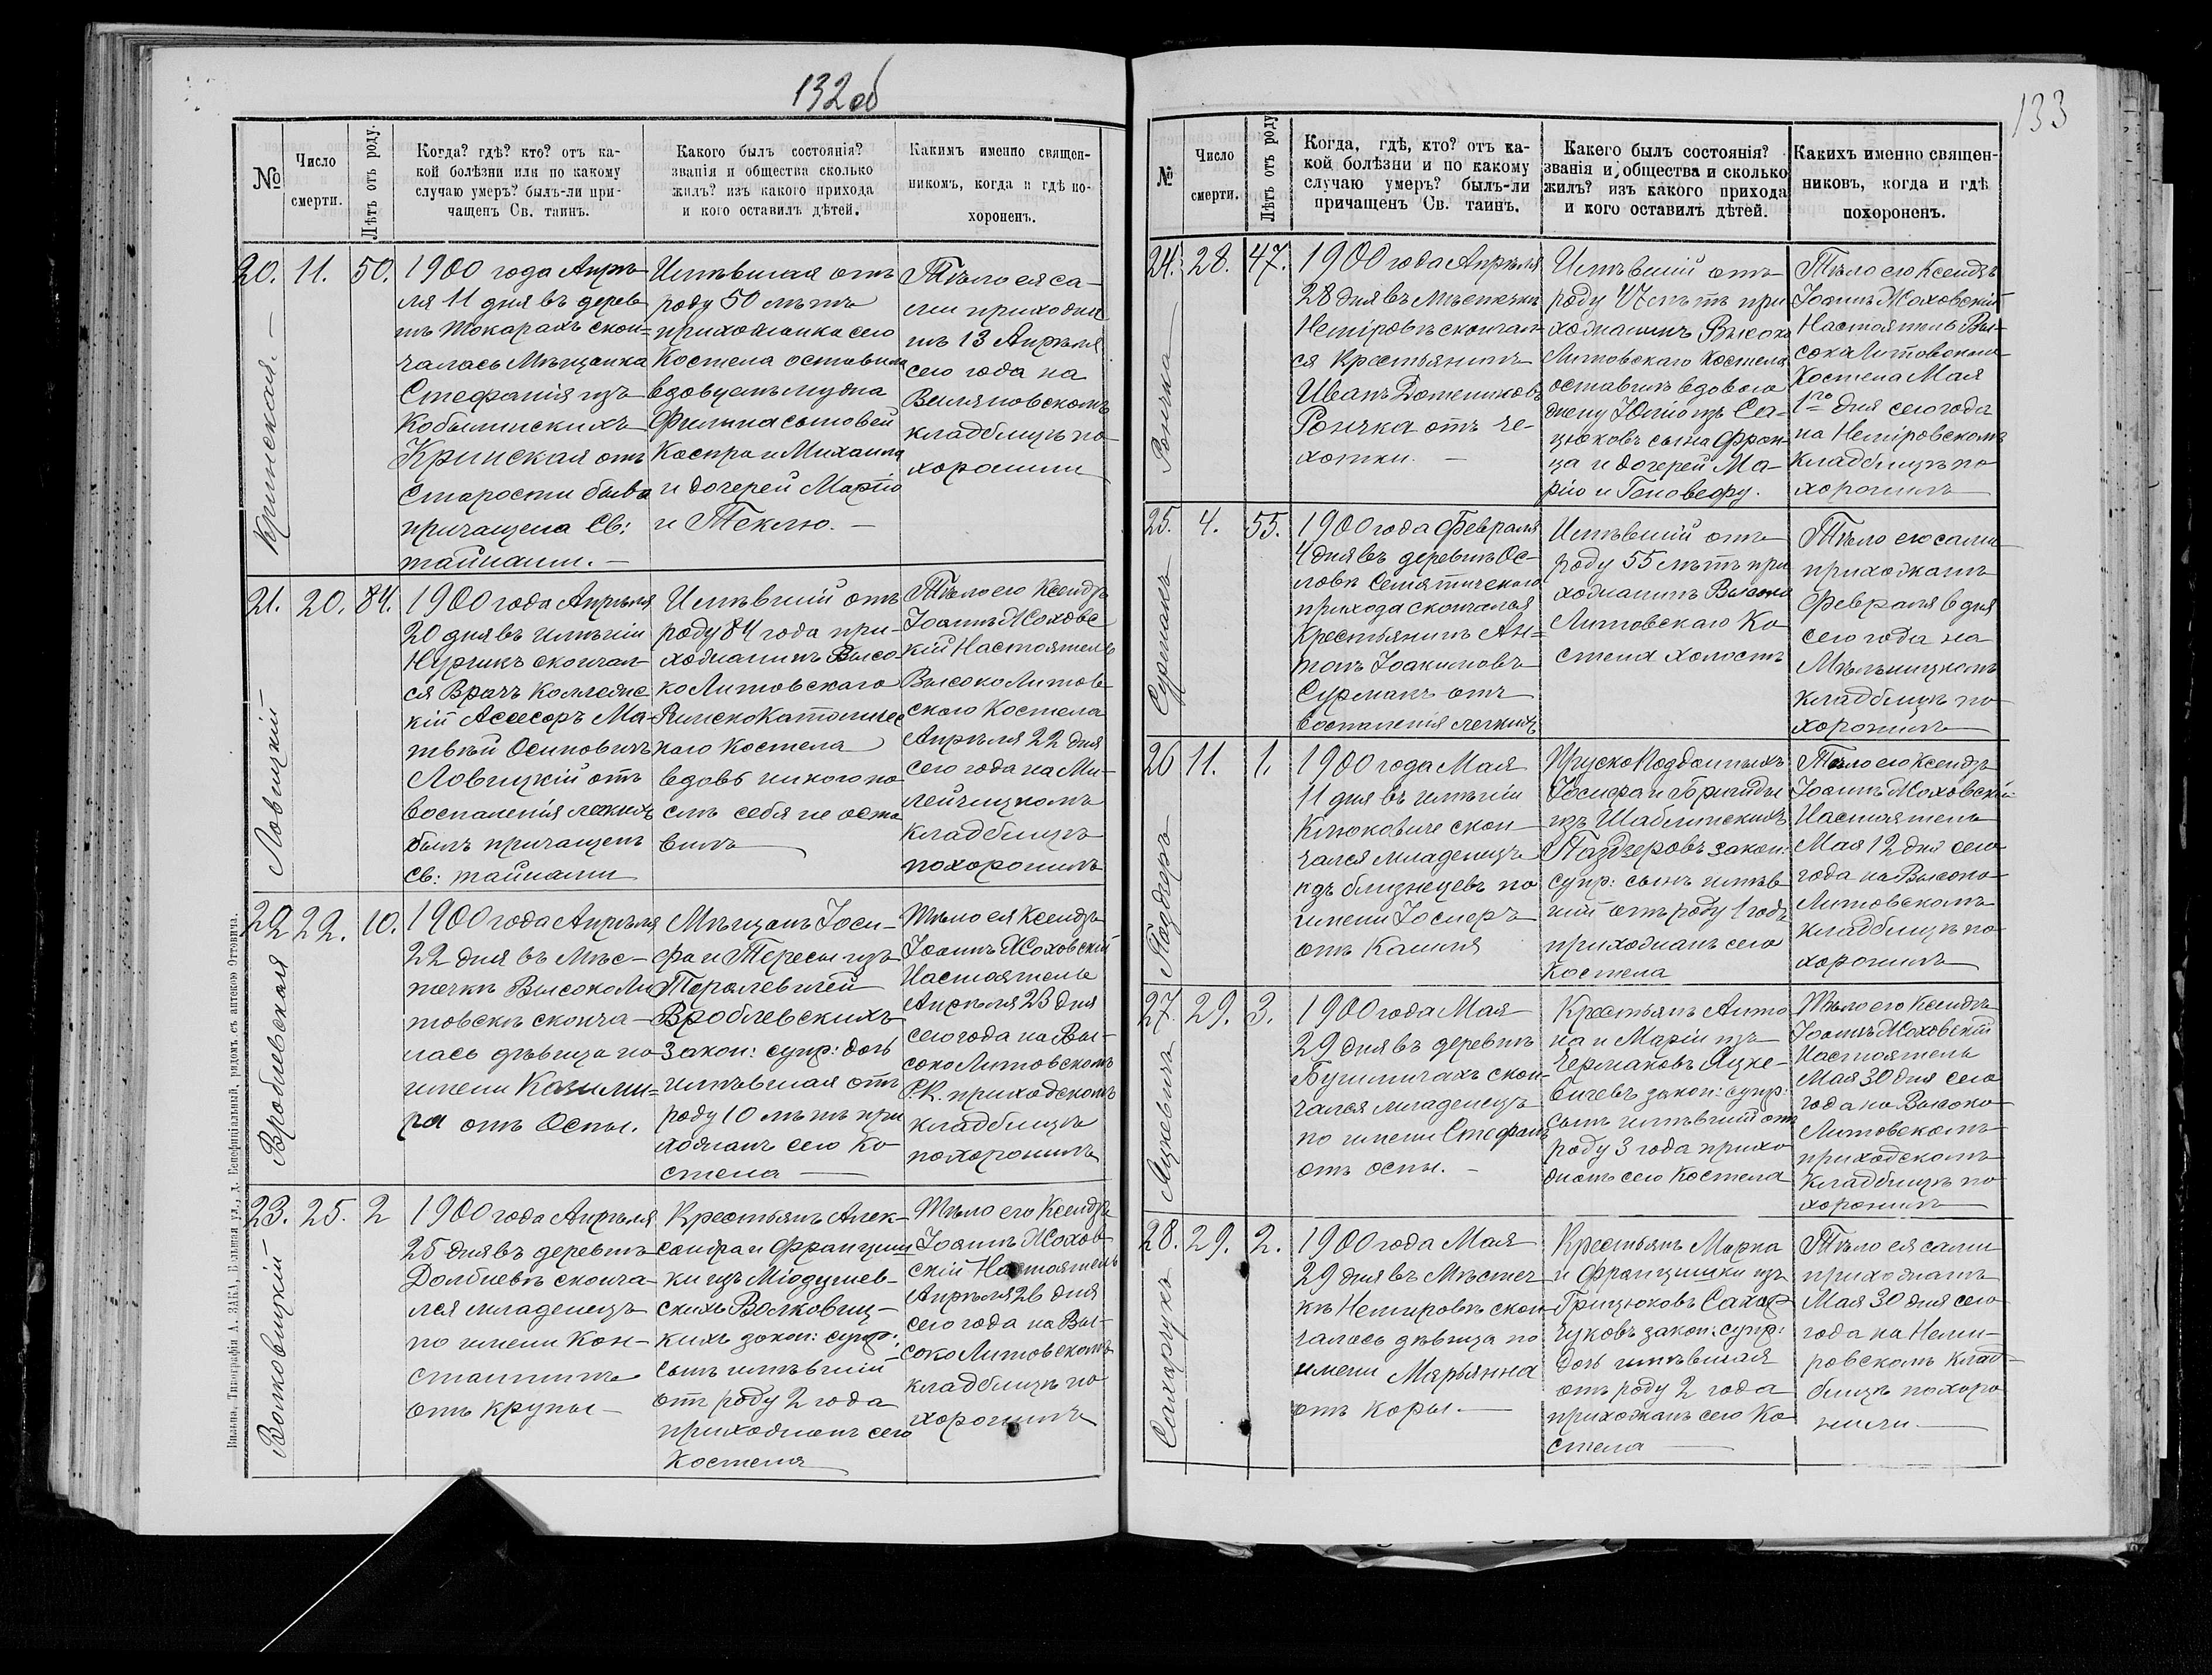 132 об
№
Число
смерти.
Лѣтъ отъ роду.
Когда? гдѣ? кто? отъ ка-
кой болѣзни или по какому
случаю умеръ? былъ-ли при-
чащенъ Св. таинъ.
Какого былъ состоянія?
званія и общества сколько
жилъ? изъ какого прихода
и кого оставилъ дѣтей.
Какимъ именно священ-
никомъ, когда и гдѣ по-
хороненъ.
20. 11. 50.
Кринская. —
1900 года Апрѣ-
ля 11 дня въ дерев
нѣ Токарахъ скон=
чалась Мѣщанка
Стефанія изъ
Кобылинскихъ
Кринская отъ
старости быва
причащена Св:
тайнами. —
Имѣвшая отъ
роду 50 лѣтъ
прихожанка сего
Костела оставила
вдовцемъ мужа
Филипа сыновей
Каспра и Михаила
и дочерей Марію
и Теклю. —
Тѣло ея са-
ми прихожа
нѣ 13 Апрѣля
сего года на
Виляновскомъ
кладбищѣ по-
хоронили
21. 20. 84.
Ловицкій
1900 года Апрѣля
20 дня въ имѣніи
Нурчикъ скончал-
ся Врачъ Коллежс
кій Асесоръ Ма-
твѣй Осиповичъ
Ловицкій отъ
воспаленія легкихъ
былъ причащенъ
Св: тайнами
Имѣвшій отъ
роду 84 года при-
хожанинъ Высо-
ко Литовскаго
Римско Католичес
каго Костела
вдовъ никого по-
слѣ себя не оста
вилъ
Тѣло его Ксендзъ
Іоаннъ Жоховс
кій Настоятель
Высоко Литов
скаго Костела
Апрѣля 22 дня
сего года на Ми-
лейчицкомъ
кладбищѣ
похоронилъ
22 22. 10.
Вроблевская
1900 года Апрѣля
22 дня въ Мѣс-
течкѣ Высоко Ли
товскѣ сконча-
лась дѣвица по
имени Казими=
ра отъ Оспы.
Мѣщанъ Іоси-
фа и Тересы изъ
Торалевичей
Вроблевскихъ
закон: супр: дочь
имѣвшая отъ
роду 10 лѣтъ при
хожанъ сего Ко
стела
Тѣло ея Ксендзъ
Іоаннъ Жоховскій
Настоятель
Апрѣля 23 дня
сего года на Вы-
соко Литовскомъ
Р.К. приходскомъ
кладбищѣ
похоронилъ
23. 25. 2
Волковицкій
1900 года Апрѣля
25 дня въ деревнѣ
Долбневѣ сконча-
лся младенецъ
по имени Кон-
стантинъ
отъ крупы
Крестьянъ Алек-
сандра и Францыш
ки изъ Міодушев-
скихъ Волковиц-
кихъ закон: супр:
сынъ имѣвшій
отъ роду 2 года
прихожанъ сего
Костела
Тѣло его Ксендзъ
Іоаннъ Жохов
скій Настоятель
Апрѣля 26 дня
сего года на Вы-
соко Литовскомъ
кладбищѣ по
хоронилъ
Вильна. Типографія А. ЗАКА, Большая ул., д. Бенефиціальный, рядомъ съ аптекою Оттовича.
133
№
Число
смерти.
Лѣтъ отъ роду
Когда, гдѣ, кто? отъ ка-
кой болѣзни и по какому
случаю умеръ? былъ-ли
причащенъ Св. таинъ.
Какего былъ состоянія?
званія и общества и сколько
жилъ? изъ какого прихода
и кого оставилъ дѣтей.
Какихъ именно священ-
никовъ, когда и гдѣ
похороненъ.
24. 28. 47.
Рончка
1900 года Апрѣля
28 дня въ Мѣстечкѣ
Неміровѣ скончал-
ся Крестьянинъ
Иванъ Домениковъ
Рончка отъ че-
хотки. —
Имѣвшій отъ
роду 47 лѣтъ при
хожанинъ Высоко
Литовскаго Костела
оставилъ вдовою
жену Юлію изъ Са-
цюковъ сына Фран-
ца и дочерей Ма-
рію и Геновефу.
Тѣло его Ксендзъ
Іоаннъ Жоховскій
Настоятель Вы-
соко Литовскаго
Костела Мая
1го дня сего года
на Неміровскомъ
кладбищѣ по
хоронилъ
25. 4. 55.
Сурманъ
1900 года Февраля
4 дня въ деревнѣ Ос-
ловѣ Семятичскаго
прихода скончался
Крестьянинъ Ан=
тонъ Іоакимовъ
Сурманъ отъ
воспаленія легкихъ
Имѣвшій отъ
роду 55 лѣтъ при
хожанинъ Высоко
Литовскаго Ко
стела холостъ
Тѣло его сами
прихожанѣ
Февраля 6 дня
сего года на
Мѣльницкомъ
кладбищѣ по
хоронилъ
26 11. 1.
Паздзеръ
1900 года Мая
11 дня въ имѣніи
Клюковиче скон
чался младенецъ
изъ близнецевъ по
имени Іосифъ
отъ Кашля
Пруско Подданныхъ
Іосифа и Бригиды
изъ Шаблинскихъ
Паздзеровъ закон:
супр: сынъ имѣв
шій отъ роду 1 годъ
прихожанъ сего
Костела
Тѣло его Ксендзъ
Іоаннъ Жоховскій
Настоятель
Мая 12 дня сего
года на Высоко-
Литовскомъ
кладбищѣ по-
хоронилъ
27. 29. 3.
Яцкевичъ
1900 года Мая
29 дня въ деревнѣ
Бушмичахъ скон-
чался младенецъ
по имени Стефанъ
отъ оспы. —
Крестьянъ Анто
на и Маріи изъ
Чермаковъ Яцке-
вичевъ закон: супр:
сынъ имѣвшій отъ
роду 3 года прихо
жанъ сего Костела
Тѣло его Ксендзъ
Іоаннъ Жоховскій
Настоятель
Мая 30 дня сего
года на Высоко-
Литовскомъ
приходскомъ
кладбищѣ по
хоронилъ
28. 29. 2.
Сахарчукъ
1900 года Мая
29 дня въ Мѣстеч
кѣ Немировѣ скон-
чалась дѣвица по
имени Марьянна
отъ коры. —
Крестьянъ Марка
и Францишки изъ
Грицюковъ Сахар
чуковъ закон: супр:
дочь имѣвшая
отъ роду 2 года
прихожанъ сего Ко
стела
Тѣло ея сами
прихожанѣ
Мая 30 дня сего
года на Неми-
ровскомъ клад-
бищѣ похоро
нили.